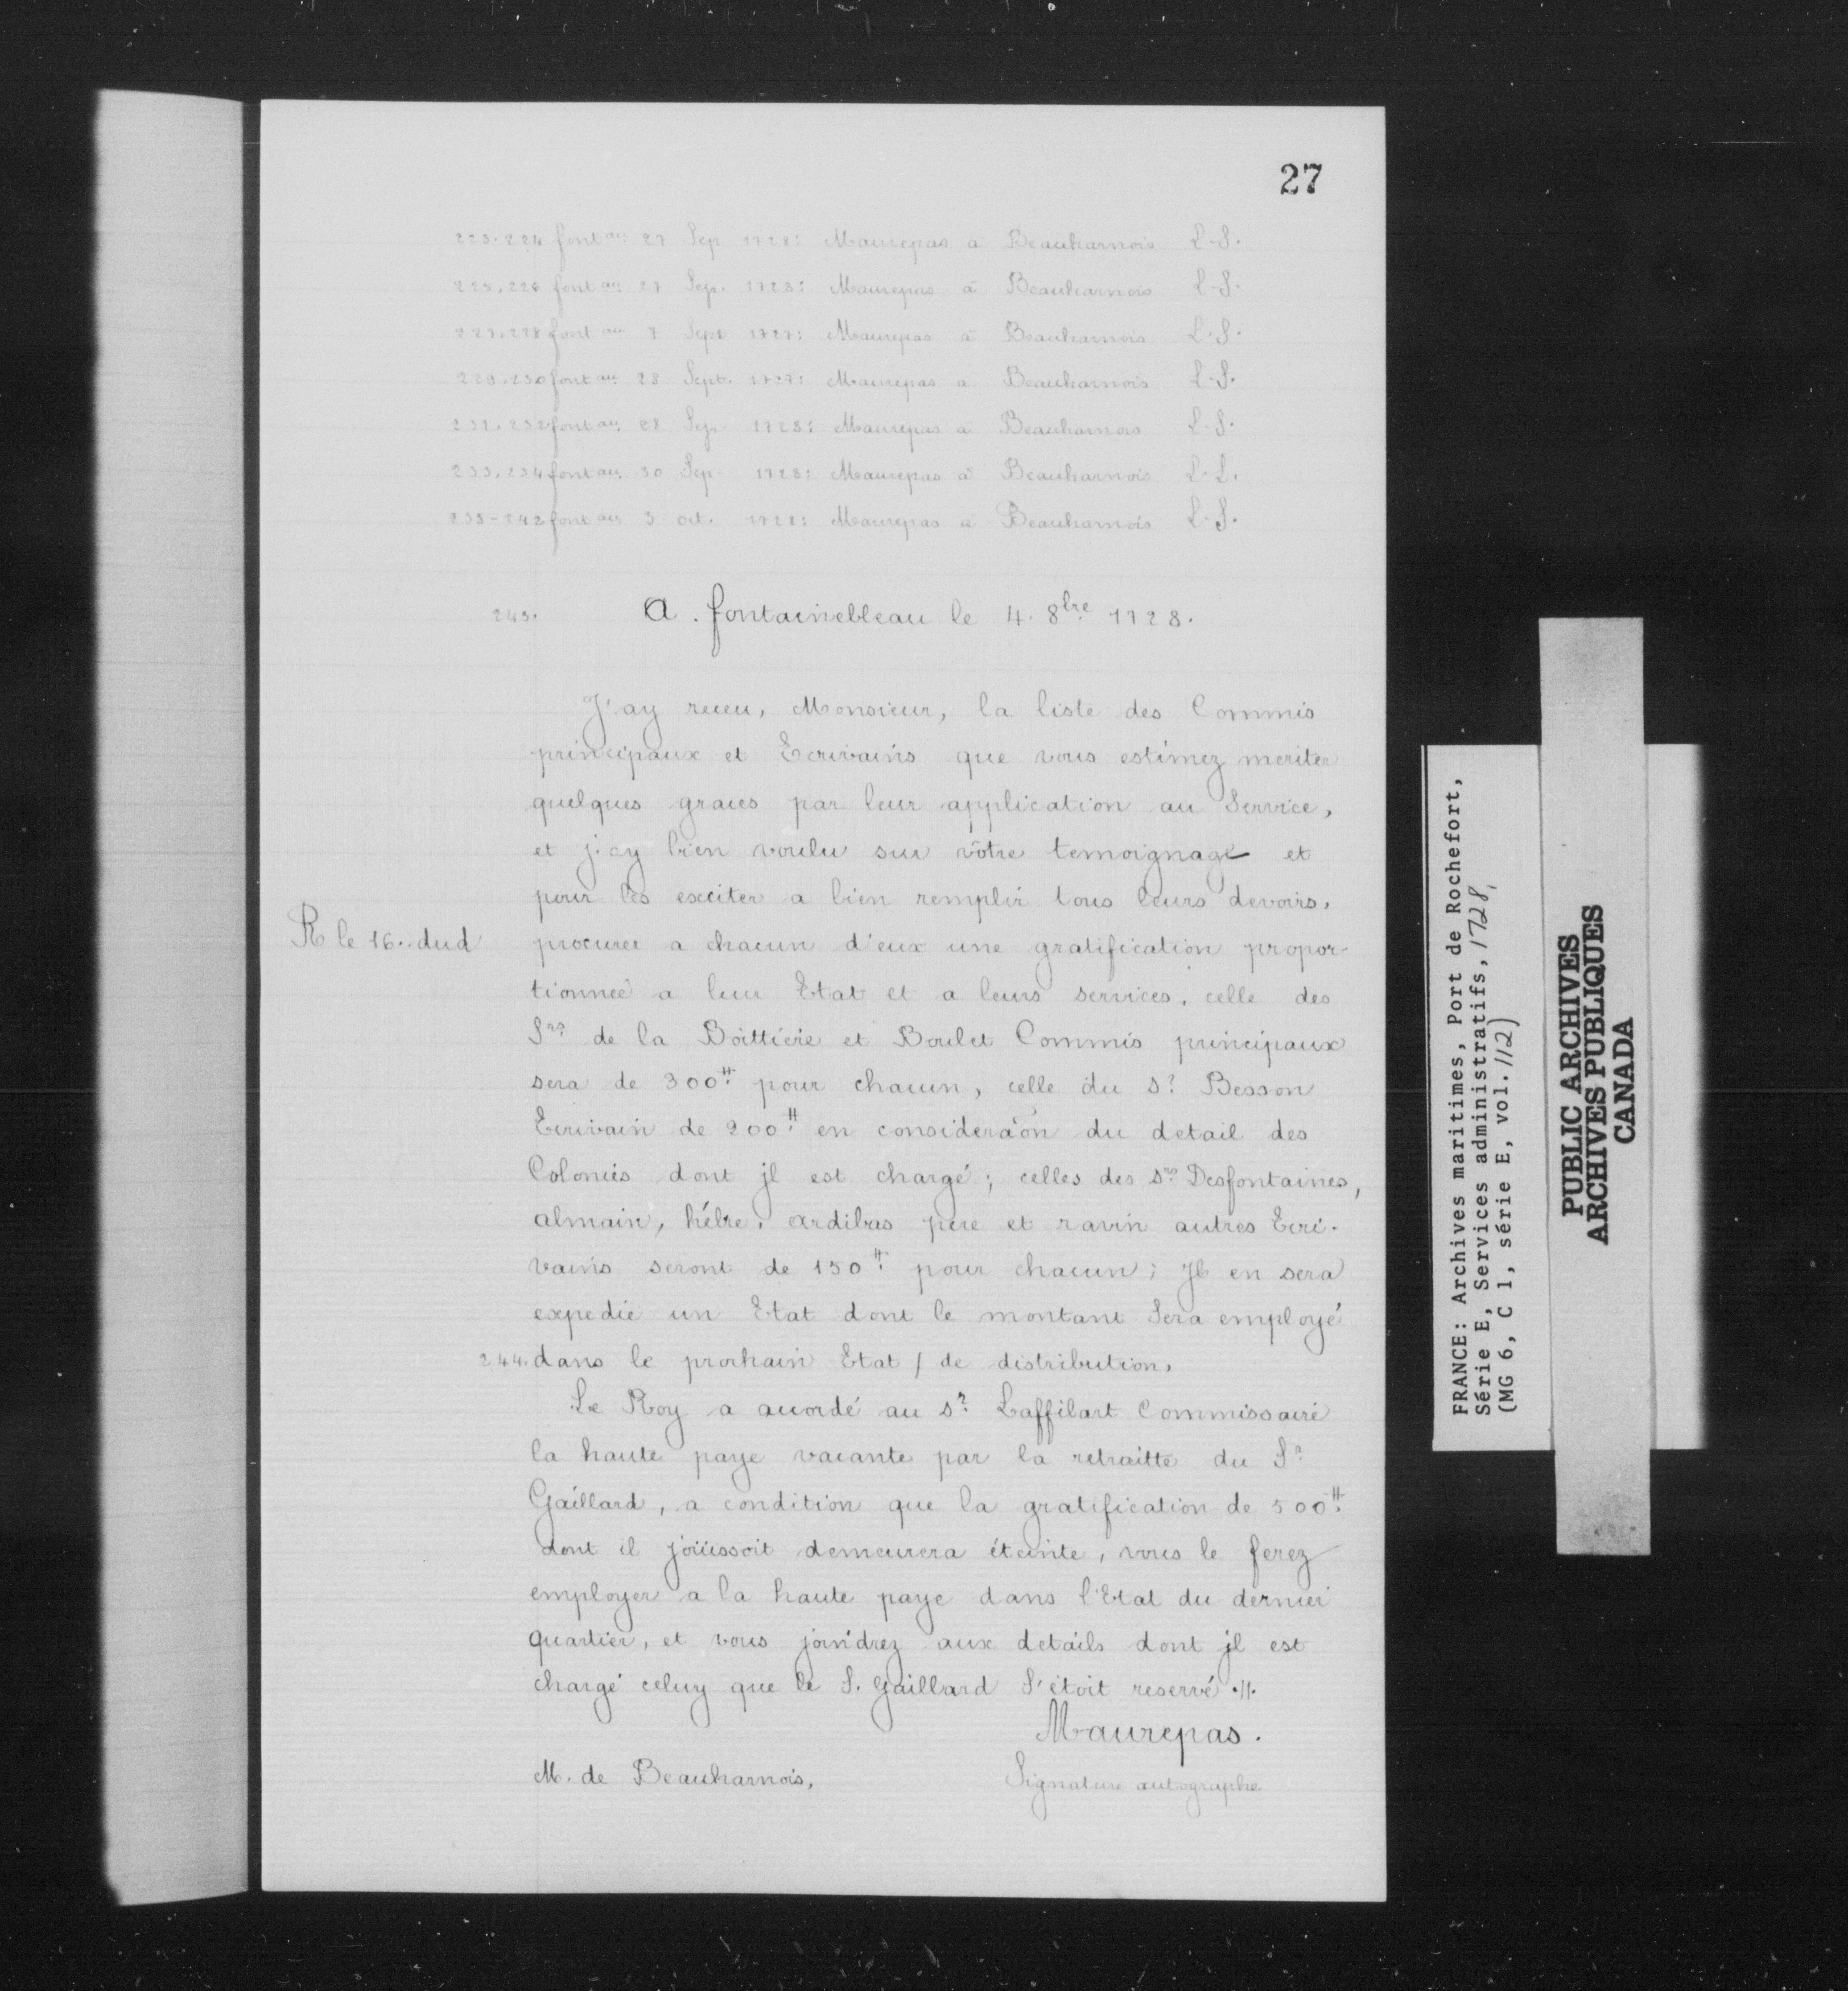 27
223.224 font au 27 Sep 1728: Maurepas à Beauharnois L-S.
225.226 font au 27 Sep. 1728: Maurepas à Beauharnois L-S.
227.228 font au 7 Sept 1727: Maurepas à Beauharnois L.S.
229.230 font au 28 Sept. 1727: Maurepas a Beauharnois L.S.
231.232 font au 28 Sep. 1728: Maurepas à Beauharnois L-S.
233.234 font au 30 Sep- 1728: Maurepas à Beauharnois L-L.
235-242 font au 3 oct. 1728: Maurepas à Beauharnois L-S.
243. A. fontainebleau le 4. 8bre 1728.
J'ay receu, Monsieur, la liste des Commis
principaux et Ecrivains que vous estimez meriter
quelques graces par leur application au Service,
et j'ay bien voulu sur vôtre temoignage et
pour les exciter a bien remplir tous leurs devoirs,
R le 16. dud
procurer a chacun d'eux une gratification propor-
tionnée a leur Etat et a leurs services, celle des
Srs de la Boittière et Boulet Commis principaux
sera de 300# pour chacun, celle du Sr Besson
Ecrivain de 200# en consideraon du detail des
Colonies dont jl est chargé; celles des Srs Desfontaines,
almain, hélre, ardilras père et ravin autres Ecri-
vains seront de 150# pour chacun; Jl en sera
expedié un Etat dont le montant Sera employé
244. dans le prochain Etat / de distribution,
Le Roy a acordé au Sr Laffilart Commissaire
la haute paye vacante par la retraitte du Sr
Gaillard, a condition que la gratification de 500#
dont il joüissoit demeurera éteinte, vous le ferez
employer a la haute paye dans l'Etat du dernier
quartier, et vous joindrez aux détails dont jl est
chargé celuy que le S. Gaillard S'étoit reservé .//.
Maurepas.
M. de Beauharnois,
Signature autographe
FRANCE: Archives maritimes, Port de Rochefort,
Série E, Services administratifs, 1728,
(MG 6, C 1, série E, vol. 112)
PUBLIC ARCHIVES
ARCHIVES PUBLIQUES
CANADA